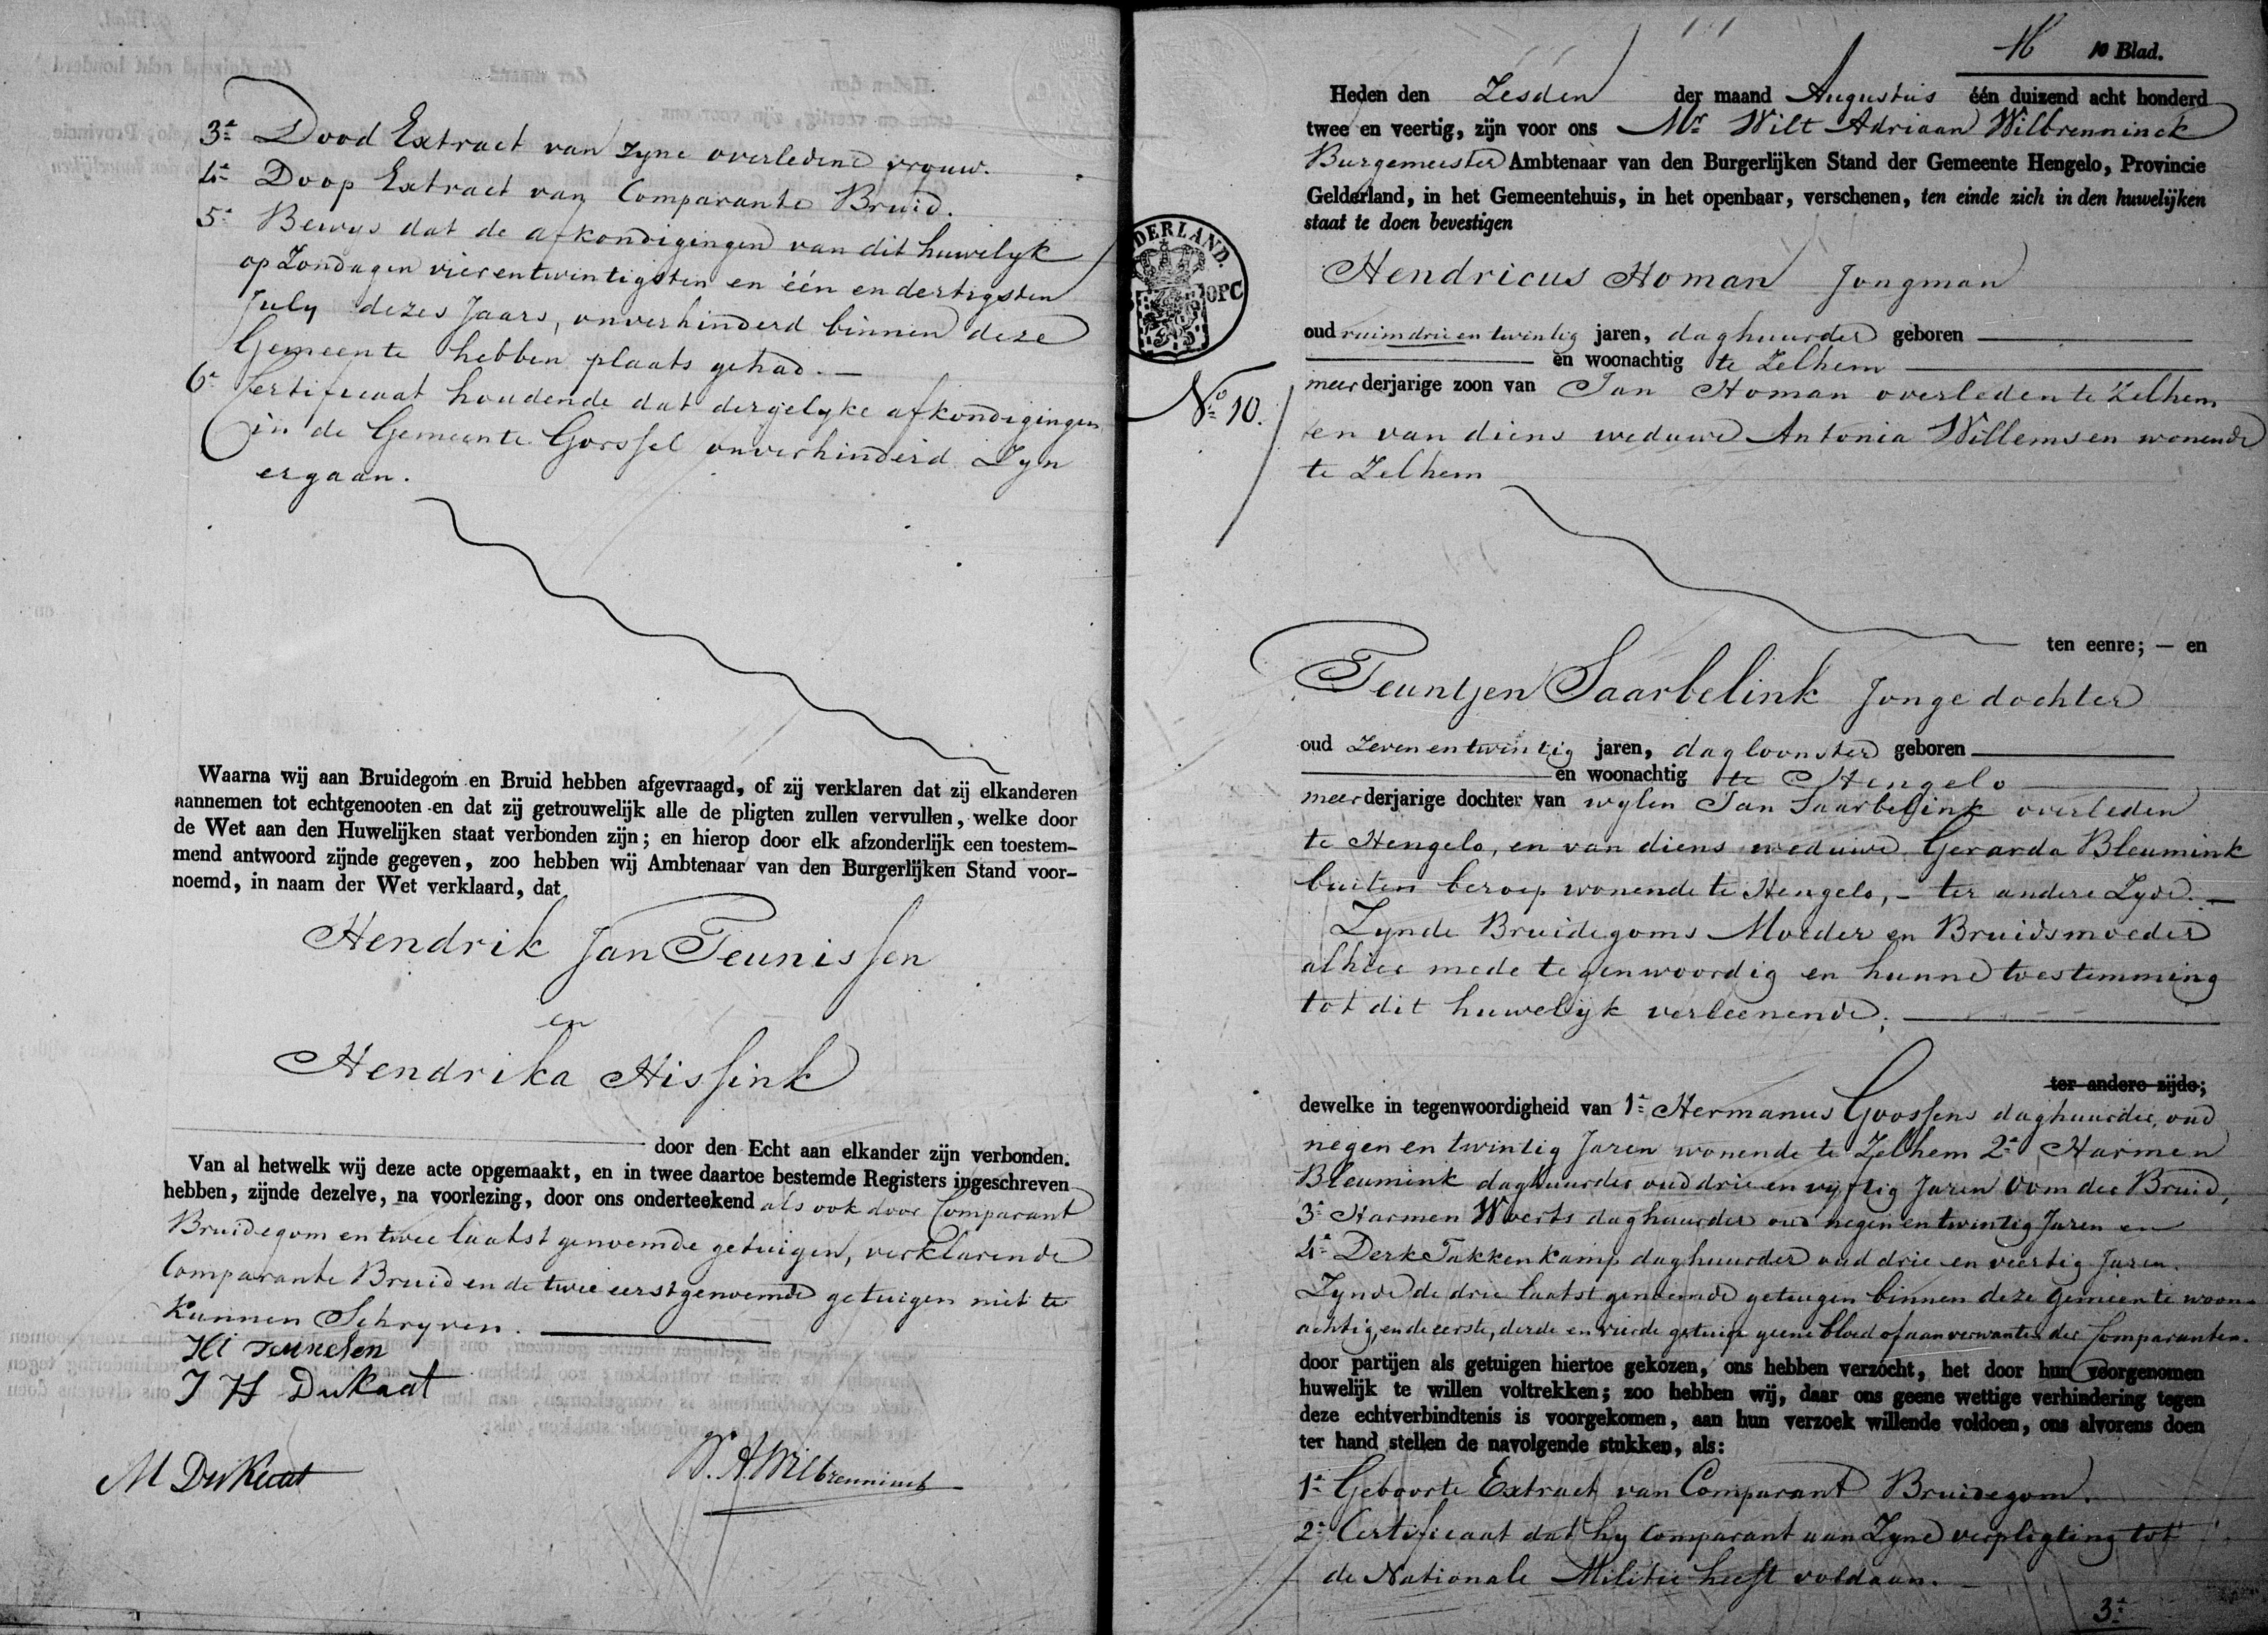 3e Dood Extract van zyne overledene vrouw.
4e Doop Extract van Comparante Bruid.
5e Bewys dat de afkondigingen van dit huwelyk
op Zondagen vierentwintigsten en één en dertigsten
July dezes Jaars, onverhinderd binnen deze
Gemeente hebben plaats gehad. —
6e Certificaat houdende dat dergelyke afkondigingen
in de Gemeente Gorssel onverhinderd Zyn
ergaan.
Waarna wij aan Bruidegom en Bruid hebben afgevraagd, of zij verklaren dat zij elkanderen
aannemen tot echtgenooten en dat zij getrouwelijk alle de pligten zullen vervullen, welke door
de Wet aan den Huwelijken staat verbonden zijn; en hierop door elk afzonderlijk een toestem-
mend antwoord zijnde gegeven, zoo hebben wij Ambtenaar van den Burgerlijken Stand voor-
noemd, in naam der Wet verklaard, dat
Hendrik Jan Teunissen
en
Hendrika Hissink
door den Echt aan elkander zijn verbonden.
Van al hetwelk wij deze acte opgemaakt, en in twee daartoe bestemde Registers ingeschreven
hebben, zijnde dezelve, na voorlezing, door ons onderteekend als ook door Comparant
Bruidegom en twee laatst genoemde getuigen, verklarende
Comparante Bruid en de twee eerstgenoemde getuigen niet te
kunnen Schryven.
J H Dukaat
M Dukaat
W. A. Wilbrenninck
16 10 Blad.
Heden den Zesden der maand Augustus één duizend acht honderd
twee en veertig, zijn voor ons Mr Wilt Adriaan Wilbrenninck
Burgemeester Ambtenaar van den Burgerlijken Stand der Gemeente Hengelo, Provincie
Gelderland, in het Gemeentehuis, in het openbaar, verschenen, ten einde zich in den huwelijken
staat te doen bevestigen
Hendricus Homan Jongman
oud ruim drie en twintig jaren, daghuurder geboren
en woonachtig te Zelhem
No 10.
meerderjarige zoon van Jan Homan overleden te Zelhem
en van diens weduwe Antonia Willemsen wonende
te Zelhem
ten eenre; — en
Teuntjen Saarbelink Jonge dochter
oud Zeven en twintig jaren, dagloonster geboren
en woonachtig te Hengelo
meerderjarige dochter van wylen Jan Saarbelink overleden
te Hengelo, en van diens weduwe Gerarda Bleumink
buiten beroep wonende te Hengelo, – ter andere Zyde. —
Zynde Bruidegoms Moeder en Bruidsmoeder
alhier mede tegenwoordig en hunne toestemming
tot dit huwelijk verleenende;
ter andere zijde;
dewelke in tegenwoordigheid van 1e Hermanus Goossens daghuurder, oud
negen en twintig Jaren wonende te Zelhem 2e Harmen
Bleumink daghuurder oud drie en vyftig Jaren Oom der Bruid,
3e Harmen Woerts daghuurder oud negen en twintig Jaren en
4e Derk Takkenkamp daghuurder oud drie en veertig Jaren.
Zynde de drie laatst genoemde getuigen binnen deze Gemeente woon-
achtig, en de eerste, derde en vierde getuige geene bloed of aanverwanten der Comparanten.
door partijen als getuigen hiertoe gekozen, ons hebben verzocht, het door hun voorgenomen
huwelijk te willen voltrekken; zoo hebben wij, daar ons geene wettige verhindering tegen
deze echtverbindtenis is voorgekomen, aan hun verzoek willende voldoen, ons alvorens doen
ter hand stellen de navolgende stukken, als:
1e Geboorte Extract van Comparant Bruidegom.
2e Certificaat dat hy Comparant aan Zyne verpligting tot
de Nationale Militie heeft voldaan. —
3e